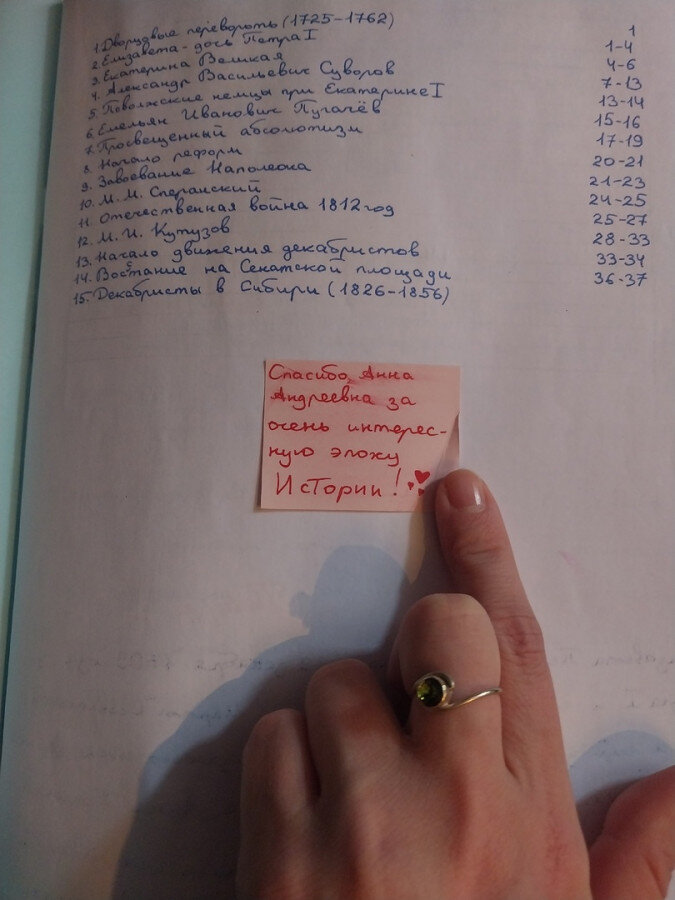 1. Дворцовые перевороты (1725-1762)
2. Елизавета - дочь Петра I 1
3. Екатерина Великая 1-4
4. Александр Васильевич Суворов 4-6
5. Поволжские немцы при Екатерине I 7-13
6. Емельян Иванович Пугачёв 13-14
7. Просвещенный абсолютизм 15-16
8. Начало реформ 17-19
9. Завоевание Наполеона 20-21
10. М. М. Сперанский 21-23
11. Отечественная война 1812 год 24-25
12. М. И. Кутузов 25-27
13. Начало движения декабристов 28-33
14. Восстание на Сенатской площади 33-34
15. Декабристы в Сибири (1826-1856) 36-37
Спасибо, Анна
Андреевна за
очень интерес-
ную эпоху
Истории!